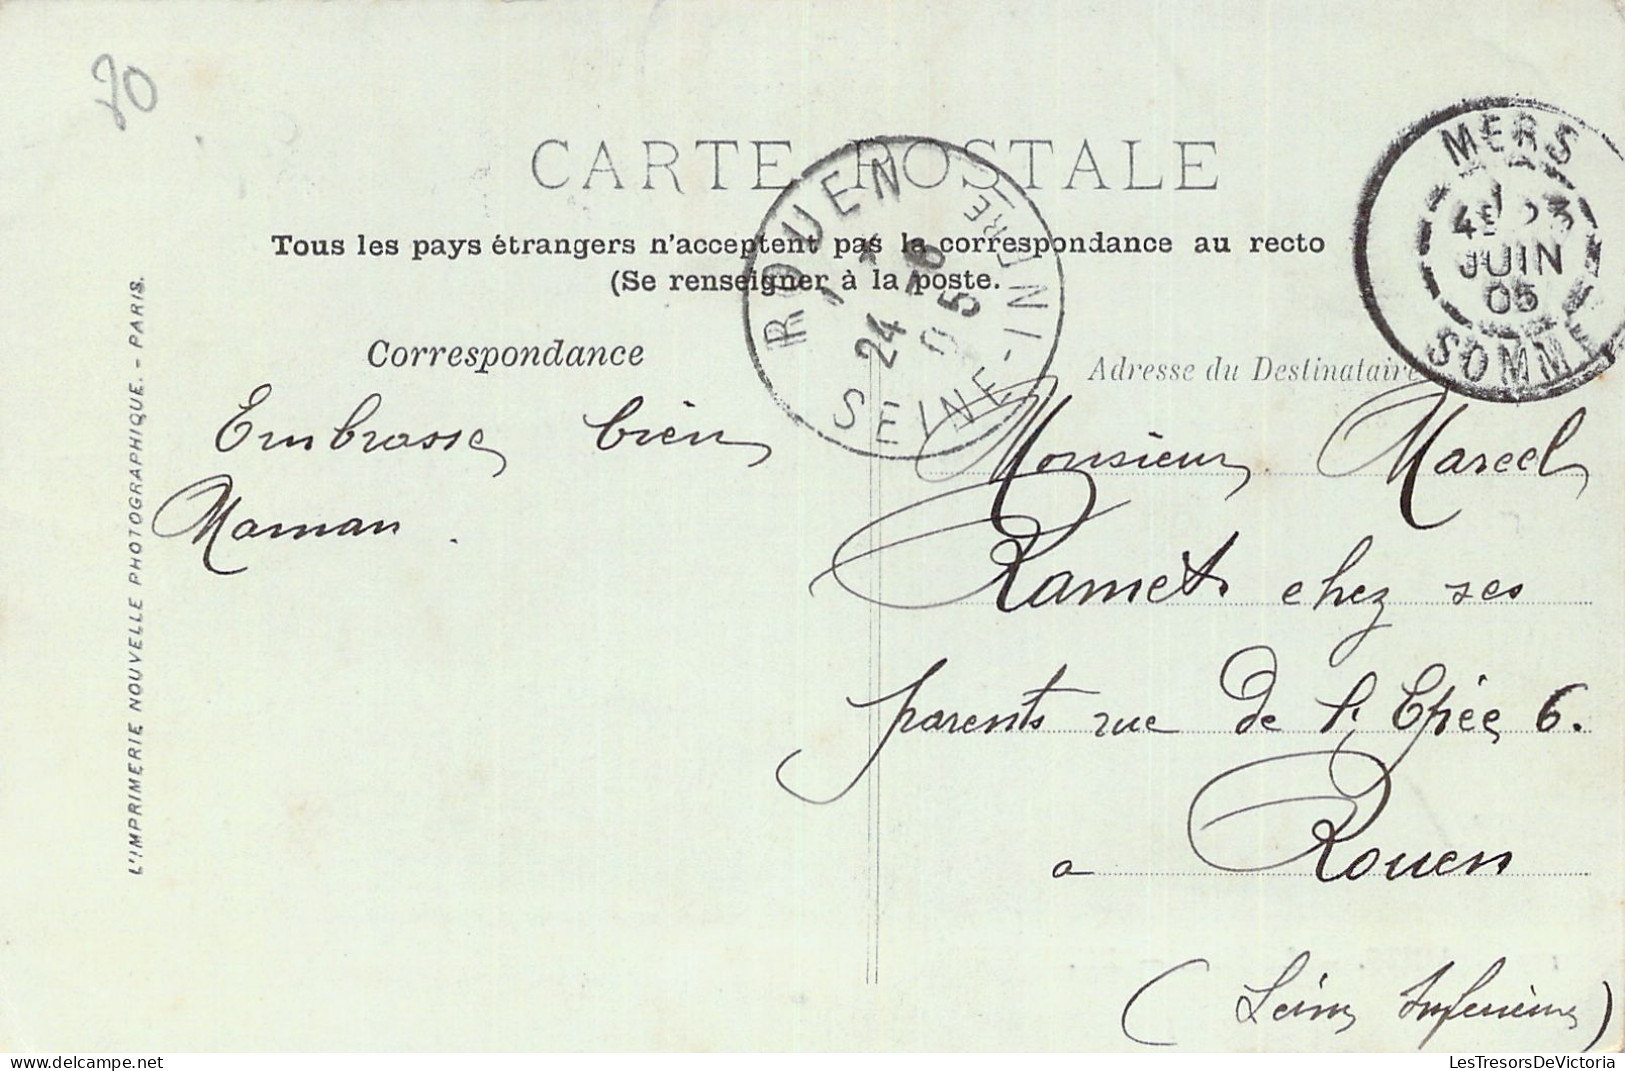 70
CARTE POSTALE
Tous les pays étrangers n'acceptent pas la correspondance au recto
(Se renseigner à la poste.
ROUEN
1 *
24 -6
05
SEINE-INFERE
MERS
4E 23
JUIN
05
SOMME
Correspondance
Embrasse bien
Maman.
Adresse du Destinataire
Monsieur Marcel
Ramet chez ses
parents rue de l'Epée 6.
a Rouen
(Seine Inférieure)
L'IMPRIMERIE NOUVELLE PHOTOGRAPHIQUE. - PARIS.
LesTresorsDeVictoria